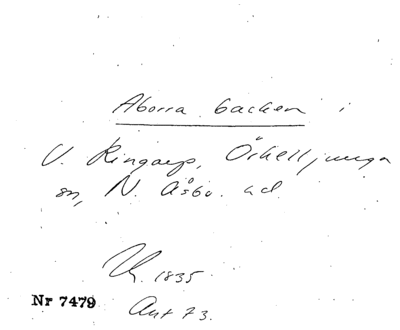 Aborra backen i
V. Ringarp, Örkelljunga
sn, N. Åsbo. hd.
1835.
Nr 7479
Ant 73.